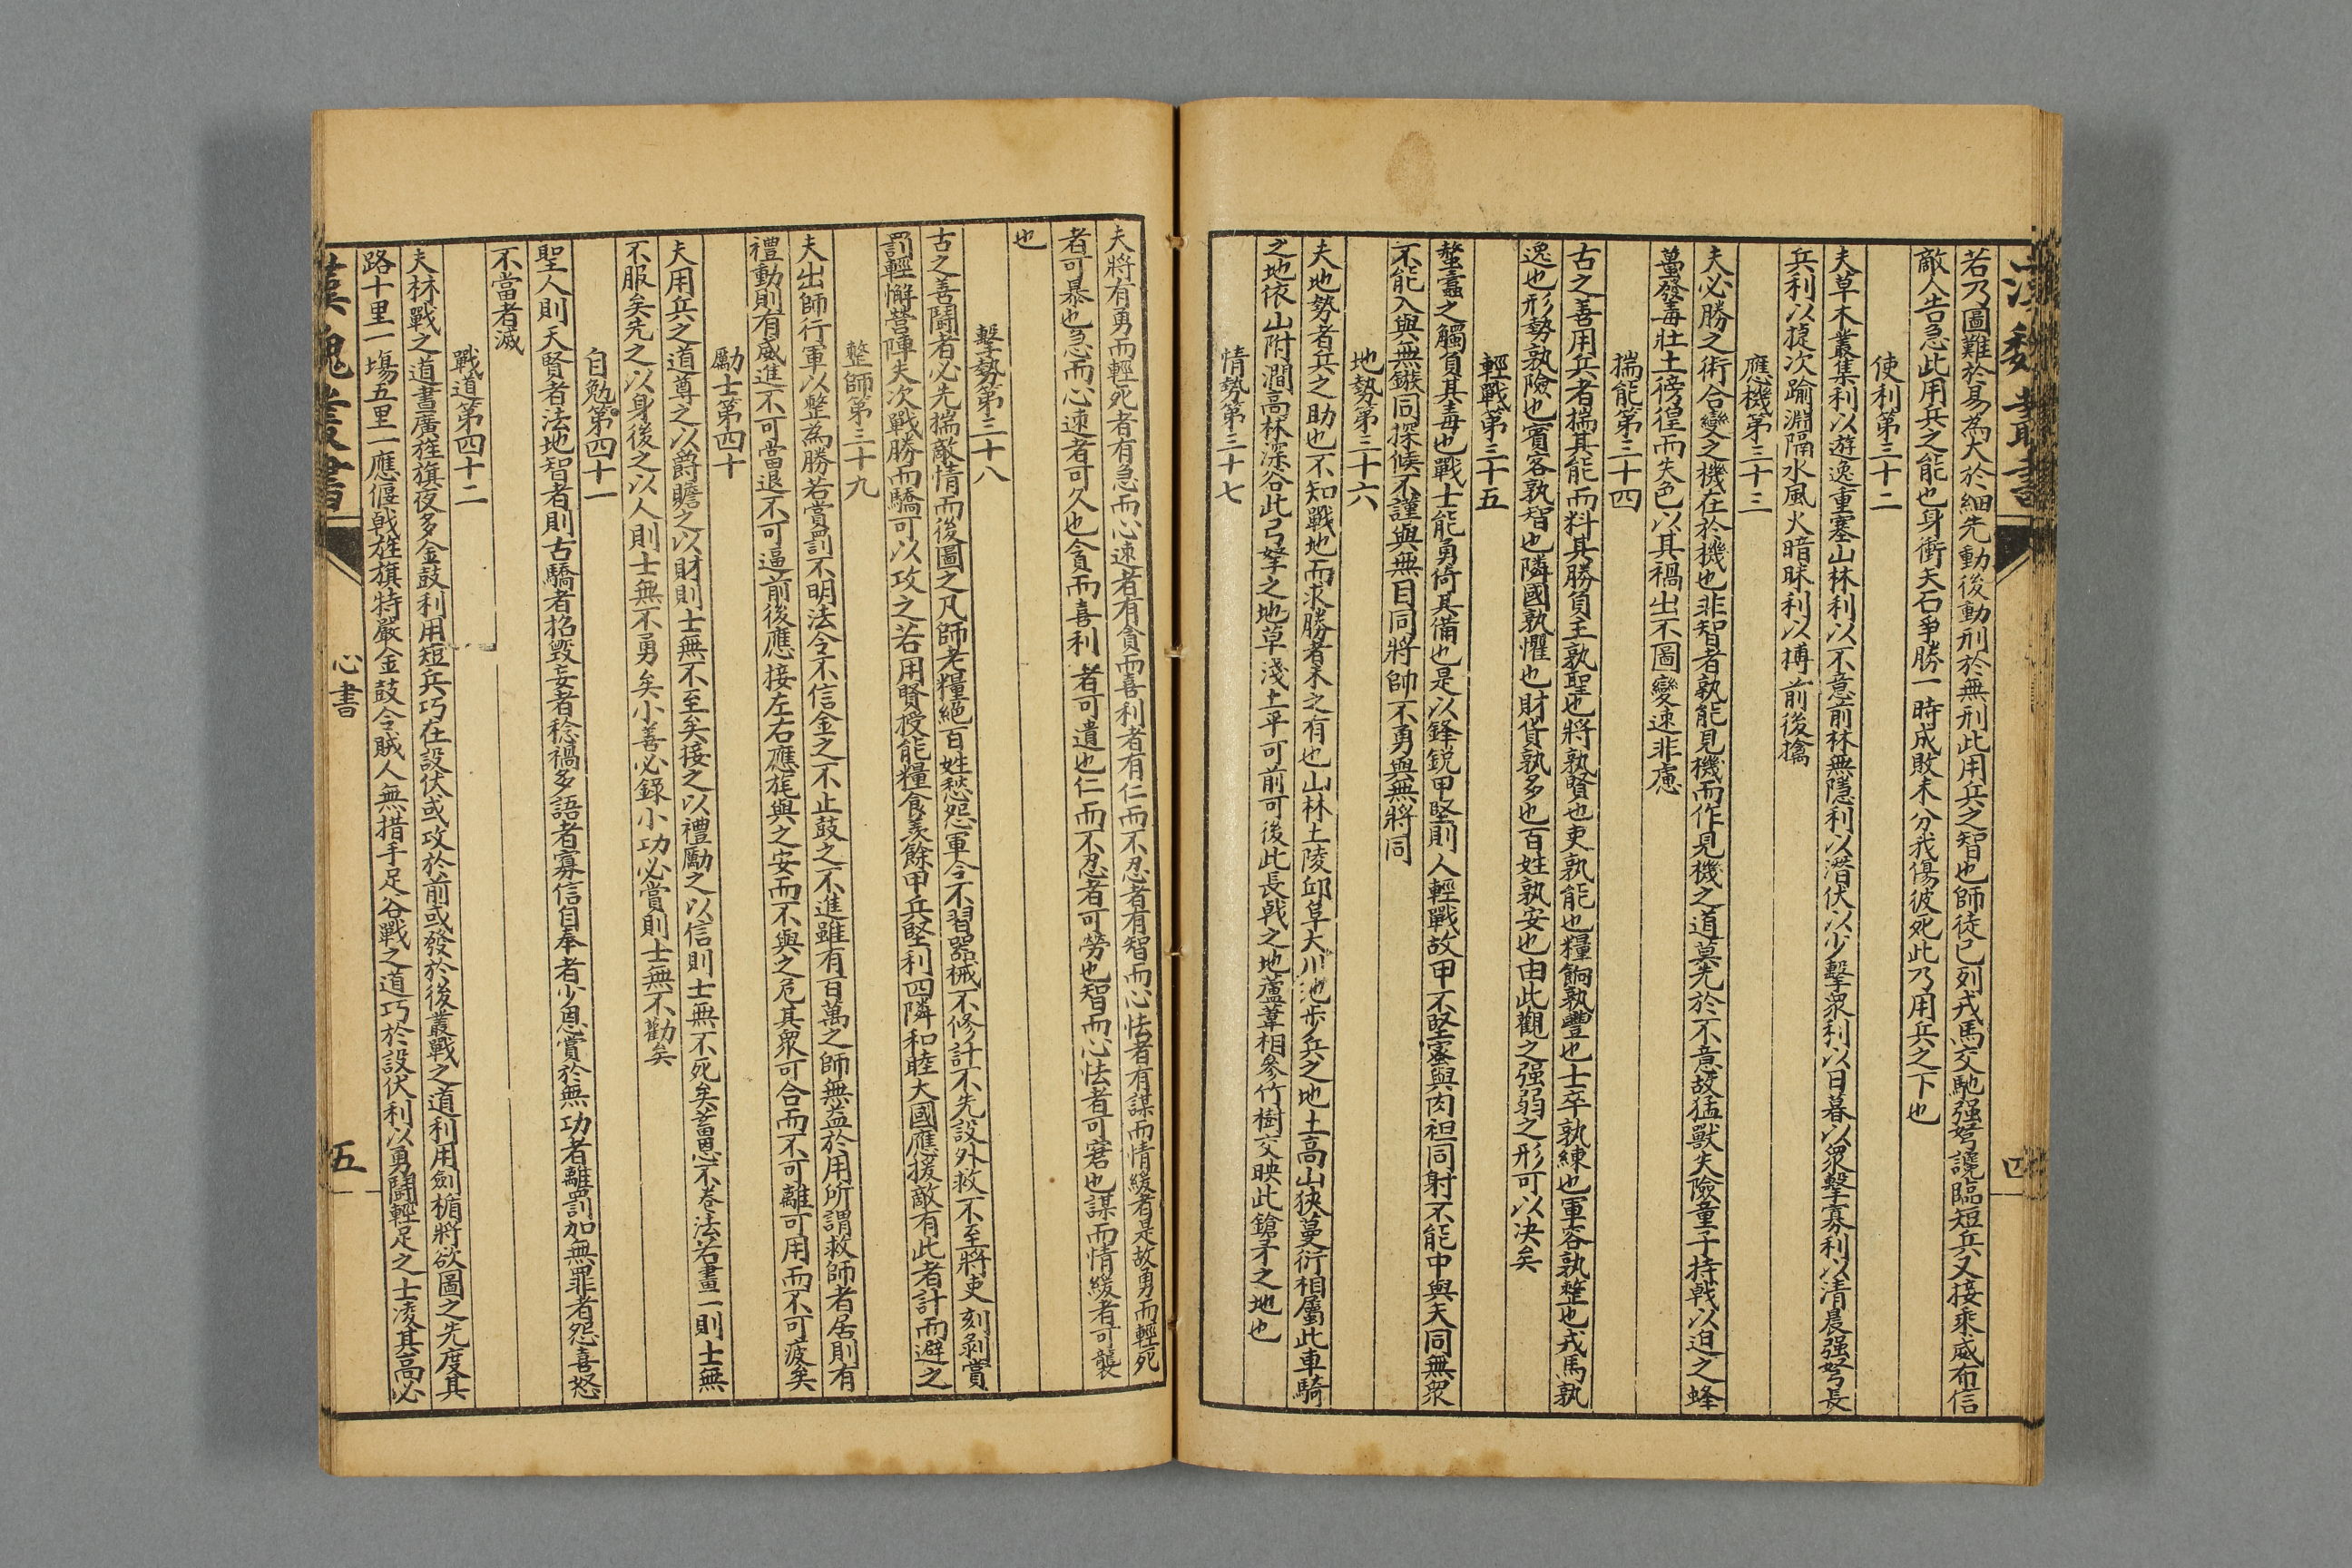 漢魏叢書
四
若乃圖難於易為大於細先動後動刑於無刑此用兵之智也師徒已列戎馬交馳强弩纔臨短兵又接乘威布信
敵人告急此用兵之能也身衝矢石爭勝一時成敗未分我傷彼死此乃用兵之下也
使利第三十二
夫草木叢集利以遊逸重塞山林利以不意前林無隱利以潛伏以少擊衆利以日暮以衆擊寡利以清晨强弩長
兵利以捷次踰淵隔水風火暗昧利以搏前後擒
應機第三十三
夫必勝之術合變之機在於機也非智者孰能見機而作見機之道莫先於不意故猛獸失險童子持戟以迫之蜂
蠆發毒壯士徬徨而失色以其禍出不圖變速非慮
揣能第三十四
古之善用兵者揣其能而料其勝負主孰聖也將孰賢也吏孰能也糧餉孰豐也士卒孰練也軍容孰整也戎馬孰
逸也形勢孰險也賓客孰智也隣國孰懼也財貨孰多也百姓孰安也由此觀之强弱之形可以决矣
輕戰第三十五
螫蠧之觸負其毒也戰士能勇倚其備也是以鋒銳甲堅則人輕戰故甲不堅密與肉袒同射不能中與無矢同衆
不能入與無鏃同探候不謹與無目同將帥不勇與無將同
地勢第三十六
夫地勢者兵之助也不知戰地而求勝者未之有也山林土陵邱阜大川此步兵之地土高山狹蔓衍相屬此車騎
之地依山附澗高林深谷此弓弩之地草淺土平可前可後此長戟之地蘆葦相參竹樹交映此鎗矛之地也
情勢第三十七
夫將有勇而輕死者有急而心速者有貪而喜利者有仁而不忍者有智而心怯者有謀而情緩者是故勇而輕死
者可暴也急而心速者可久也貪而喜利者可遺也仁而不忍者可勞也智而心怯者可窘也謀而情緩者可襲
也
擊勢第三十八
古之善鬭者必先揣敵情而後圖之凡師老糧絕百姓愁怨軍令不習器械不修計不先設外救不至將吏刻剥賞
罰輕懈營陣失次戰勝而驕可以攻之若用賢授能糧食羨餘甲兵堅利四隣和睦大國應援敵有此者計而避之
整師第三十九
夫出師行軍以整為勝若賞罰不明法令不信金之不止鼓之不進雖有百萬之師無益於用所謂救師者居則有
禮動則有威進不可當退不可逼前後應接左右應旄與之安而不與之危其衆可合而不可離可用而不可疲矣
勵士第四十
夫用兵之道尊之以爵贍之以財則士無不至矣接之以禮勵之以信則士無不死矣蓄恩不卷法若畫一則士無
不服矣先之以身後之以人則士無不勇矣小善必錄小功必賞則士無不勸矣
自勉第四十一
聖人則天賢者法地智者則古驕者招毀妄者稔禍多語者寡信自奉者少恩賞於無功者離罰加無罪者怨喜怒
不當者滅
戰道第四十二
夫林戰之道晝廣旌旗夜多金鼓利用短兵巧在設伏或攻於前或發於後叢戰之道利用劍楯將欲圖之先度其
路十里一塲五里一應偃戢旌旗特嚴金鼓令賊人無措手足谷戰之道巧於設伏利以勇鬭輕足之士凌其高必
漢魏叢書
心書
五